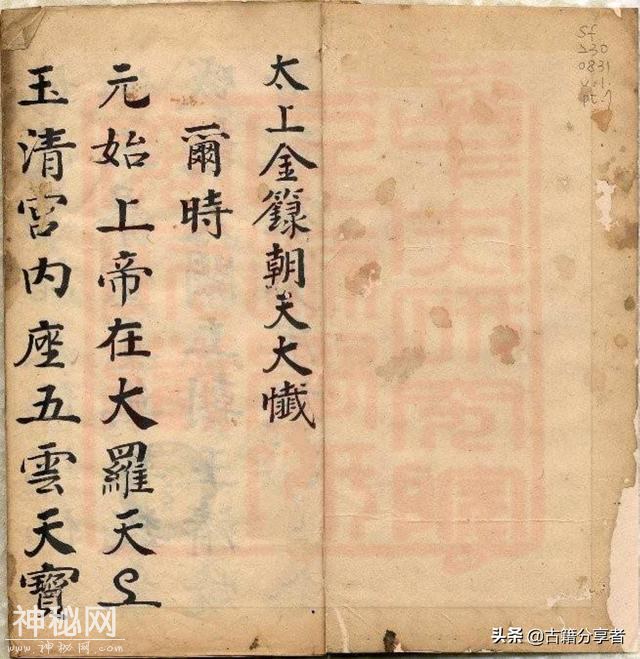 Sf
230
0831
v.1
pt.7
太上金籙朝天大懺
爾時
元始上帝在大羅天上
玉清宫内座五雲天寶
神秘网
www.神秘网.com
头条 @古籍分享者